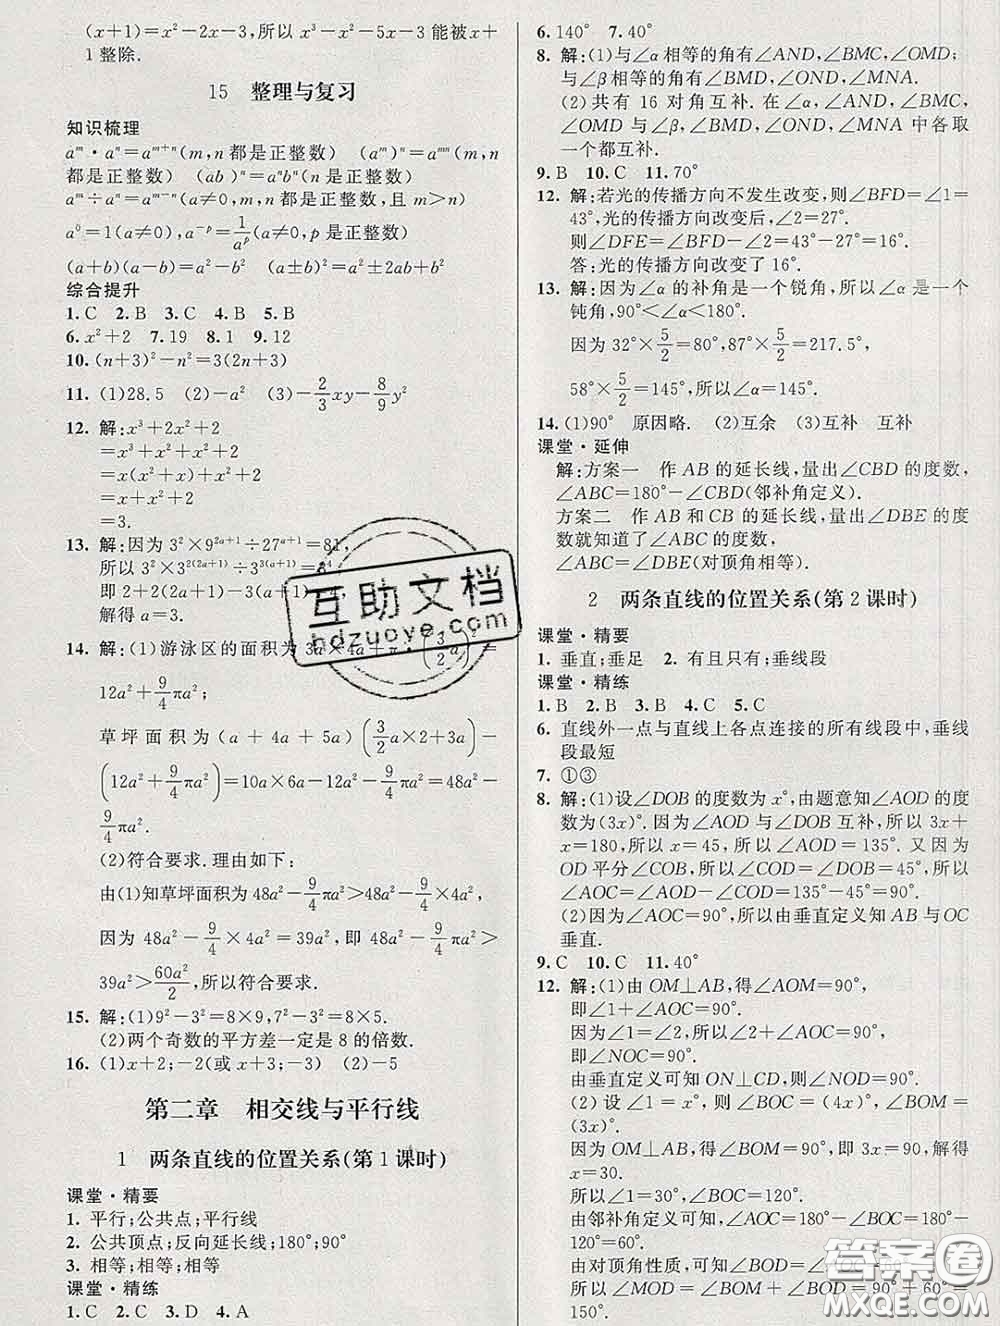 (x+1)=x²-2x-3,所以 x³-x²-5x-3能被x+
1整除.
15 整理与复习
知识梳理
aᵐ·aⁿ=aᵐ⁺ⁿ(m,n都是正整数) (aᵐ)ⁿ=aᵐⁿ(m,n
都是正整数) (ab)ⁿ=aⁿbⁿ(n是正整数)
aᵐ÷aⁿ=aᵐ⁻ⁿ(a≠0,m,n都是正整数,且m>n)
a⁰=1(a≠0),a⁻ᵖ=1/aᵖ(a≠0,p是正整数)
(a+b)(a-b)=a²-b² (a±b)²=a²±2ab+b²
综合提升
1.C 2.B 3.C 4.B 5.B
6.x²+2 7.19 8.1 9.12
10.(n+3)²-n²=3(2n+3)
11.(1)28.5 (2)-a² (3)-2/3xy-8/9y²
12.解:x³+2x²+2
=x³+x²+x²+2
=x(x²+x)+x²+2
=x+x²+2
=3.
13.解:因为3²×9²ᵃ⁺¹÷27ᵃ⁺¹=81,
所以3²×3²⁽²ᵃ⁺¹⁾÷3³⁽ᵃ⁺¹⁾=3⁴,
即2+2(2a+1)-3(a+1)=4.
解得a=3.
14.解:(1)游泳区的面积为3a×4a+π·(3/2a)²=
12a²+9/4πa²;
草坪面积为(a+4a+5a)(3/2a×2+3a)-
(12a²+9/4πa²)=10a×6a-12a²-9/4πa²=48a²-
9/4πa².
(2)符合要求.理由如下:
由(1)知草坪面积为48a²-9/4πa²>48a²-9/4×4a²,
因为48a²-9/4×4a²=39a²,即48a²-9/4πa²>
39a²>60a²/2,所以符合要求.
15.解:(1)9²-3²=8×9,7²-3²=8×5.
(2)两个奇数的平方差一定是8的倍数.
16.(1)x+2;-2(或x+3;-3) (2)-5
第二章 相交线与平行线
1 两条直线的位置关系(第1课时)
课堂·精要
1.平行;公共点;平行线
2.公共顶点;反向延长线;180°;90°
3.相等;相等;相等
课堂·精练
1.C 2.C 3.D 4.A
6.140° 7.40°
8.解:(1)与∠α相等的角有∠AND,∠BMC,∠OMD;
与∠β相等的角有∠BMD,∠OND,∠MNA.
(2)共有16对角互补.在∠α,∠AND,∠BMC,
∠OMD与∠β,∠BMD,∠OND,∠MNA中各取
一个都互补.
9.B 10.C 11.70°
12.解:若光的传播方向不发生改变,则∠BFD=∠1=
43°,光的传播方向改变后,∠2=27°.
则∠DFE=∠BFD-∠2=43°-27°=16°.
答:光的传播方向改变了16°.
13.解:因为∠α的补角是一个锐角,所以∠α是一个
钝角,90°<∠α<180°.
因为32°×5/2=80°,87°×5/2=217.5°,
58°×5/2=145°,所以∠α=145°.
14.(1)90° 原因略. (2)互余 (3)互补 互补
课堂·延伸
解:方案一 作AB的延长线,量出∠CBD的度数,
∠ABC=180°-∠CBD(邻补角定义).
方案二 作AB和CB的延长线,量出∠DBE的度
数就知道了∠ABC的度数,
∠ABC=∠DBE(对顶角相等).
2 两条直线的位置关系(第2课时)
课堂·精要
1.垂直;垂足 2.有且只有;垂线段
课堂·精练
1.B 2.B 3.B 4.C 5.C
6.直线外一点与直线上各点连接的所有线段中,垂线
段最短
7.①③
8.解:(1)设∠DOB的度数为x°,由题意知∠AOD的度
数为(3x)°.因为∠AOD与∠DOB互补,所以3x+
x=180,所以x=45,所以∠AOD=135°.又因为
OD平分∠COB,所以∠COD=∠DOB=45°,所以
∠AOC=∠AOD-∠COD=135°-45°=90°.
(2)因为∠AOC=90°,所以由垂直定义知AB与OC
垂直.
9.C 10.C 11.40°
12.解:(1)由OM⊥AB,得∠AOM=90°,
即∠1+∠AOC=90°.
因为∠1=∠2,所以∠2+∠AOC=90°,
即∠NOC=90°.
由垂直定义可知ON⊥CD,则∠NOD=90°.
(2)设∠1=x°,则∠BOC=(4x)°,∠BOM=
(3x)°.
因为OM⊥AB,得∠BOM=90°,即3x=90,解得
x=30.
所以∠1=30°,∠BOC=120°.
由邻补角定义可知,∠AOC=180°-∠BOC=180°-
120°=60°.
由对顶角性质可知,∠BOD=∠AOC=60°.
所以∠MOD=∠BOM+∠BOD=90°+60°=
150°.
互助文档
hdzuoye.com
答案圈
MXQE.COM